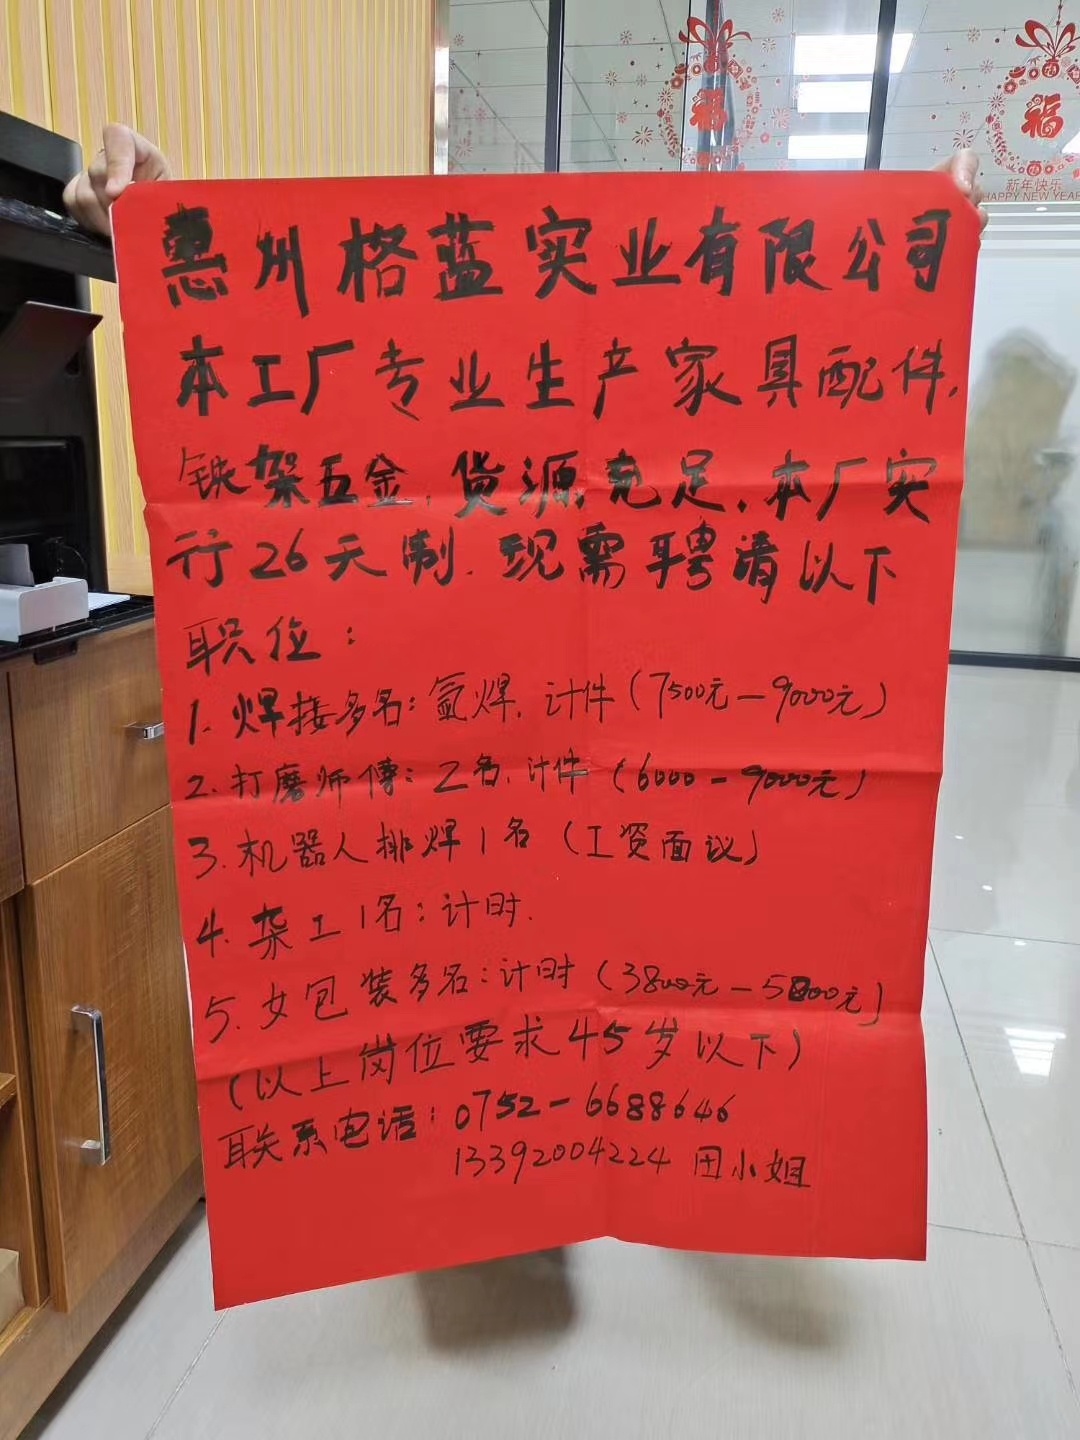 福
福
新年快乐
HAPPY NEW YEAR
惠州格蓝实业有限公司
本工厂专业生产家具配件,
铁架五金,货源充足,本厂实
行26天制.现需聘请以下
职位:
1. 焊接多名:氩焊,计件(7500元-9000元)
2. 打磨师傅:2名,计件(6000-9000元)
3. 机器人排焊1名(工资面议)
4. 杂工1名:计时.
5. 女包装多名:计时(3800元-5800元)
(以上岗位要求45岁以下)
联系电话:0752-6688646
13392004224 田小姐